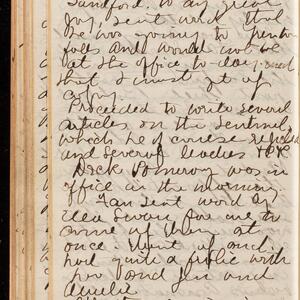 Sandford. To my great
joy, sent word that
he was going to
and would not be
at the office to-day and
that I must get up
copy.
Proceeded to write several
articles on the Sentinel,
which he of course
and several leaders
Dick Pomeroy was in
office in the morning.
Fan sent word by
Clea Swan for me to
come up then at
once. Went up and
had quite a frolic with
her and Jen and
Amelie